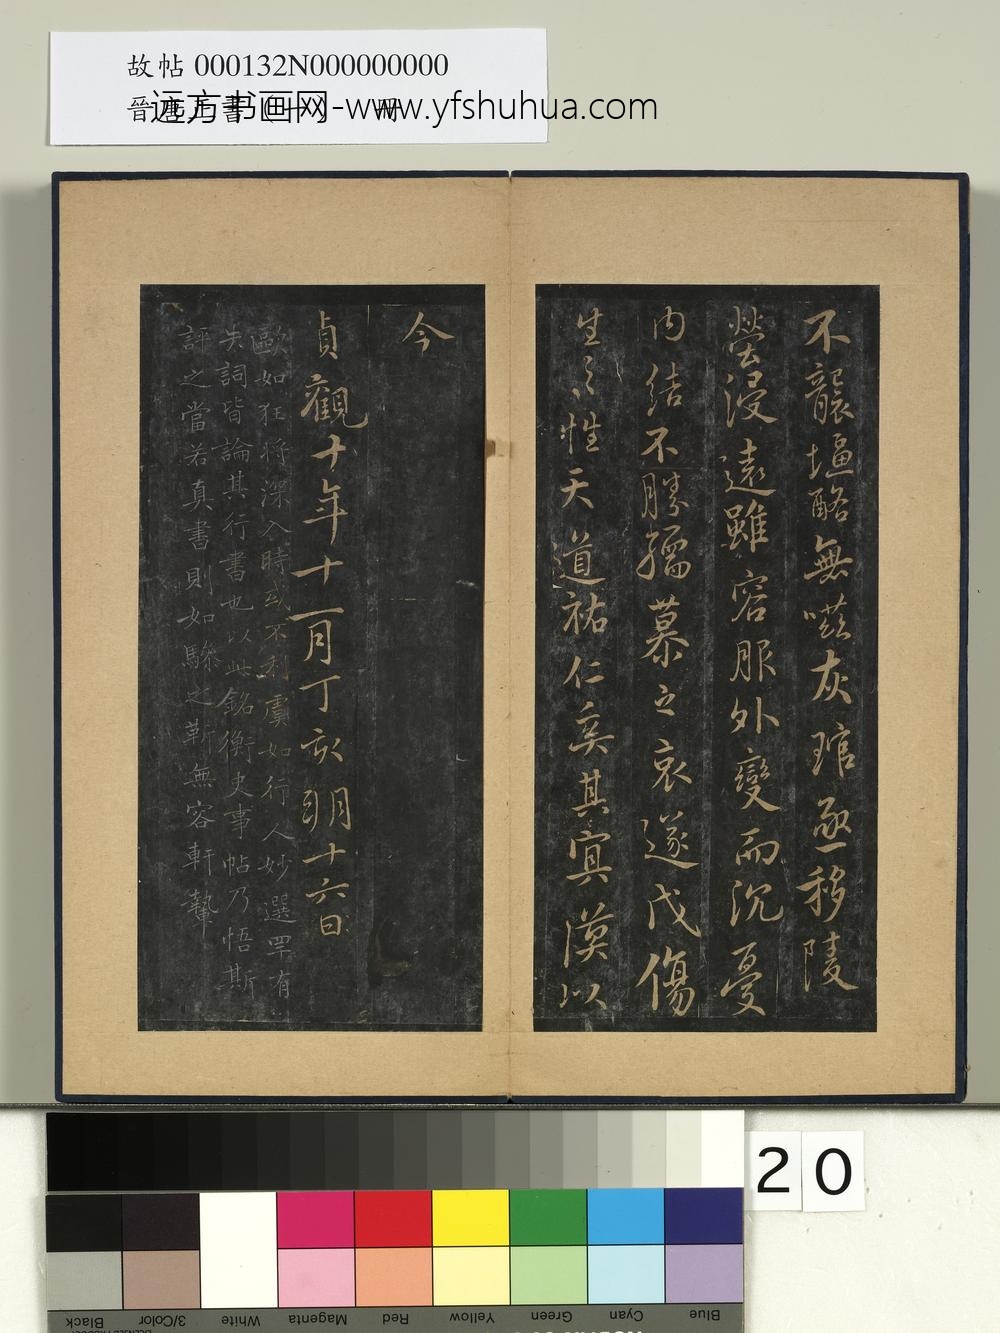 故帖 000132N000000000
远方书画网-www.yfshuhua.com
不襲堛酪無嗞灰琯亟移陵
塋浸遠雖容服外變而沉憂
内結不勝孺慕之哀遂戊傷
生之性天道祐仁奚其冥漠以
今
貞觀十年十一月丁亥朔十六日
歐如狂將深入時或不利虞如行人妙選罕有
失詞皆論其行書也以此銘衡史事帖乃悟斯
評之當若真書則如驂之靳無容軒輊
20
Black
3/Color
White
Magenta
Red
Yellow
Green
Cyan
Blue